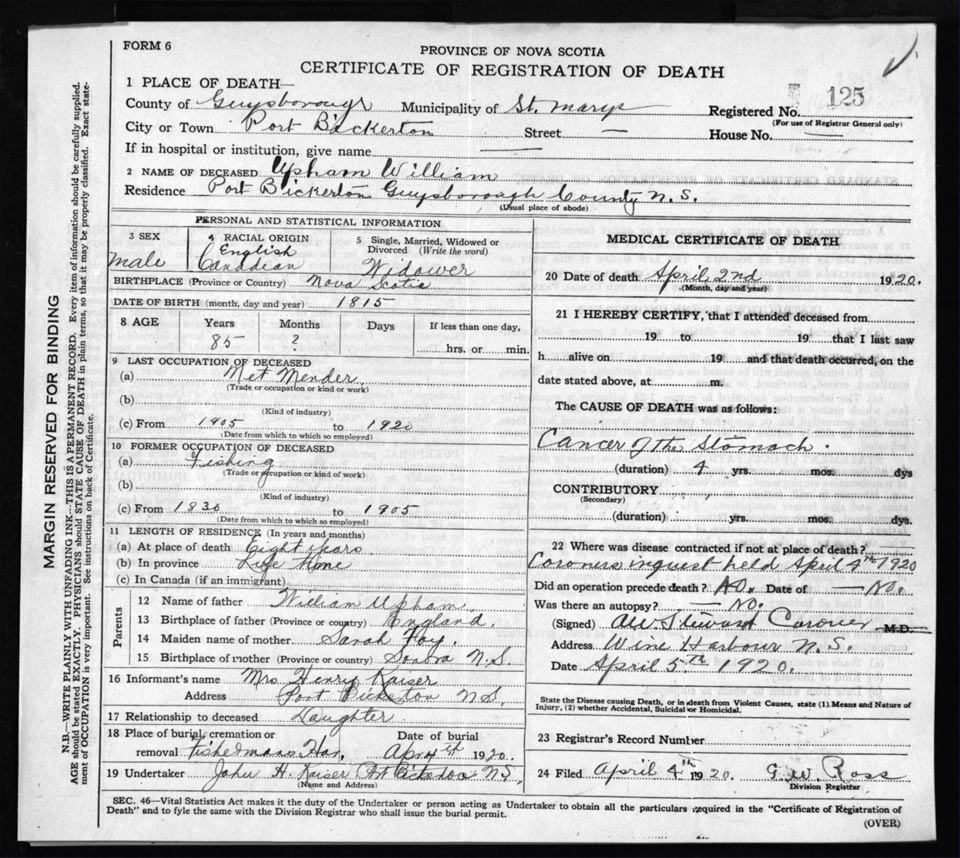 FORM 6
PROVINCE OF NOVA SCOTIA
CERTIFICATE OF REGISTRATION OF DEATH
1 PLACE OF DEATH—
County of Guysborough Municipality of St. Marys Registered No. 125
(For use of Registrar General only)
City or Town Port Bickerton Street — House No. —
If in hospital or institution, give name —
2 NAME OF DECEASED Upham William
Residence Port Bickerton Guysborough County N.S.
(Usual place of abode)
PERSONAL AND STATISTICAL INFORMATION
3 SEX
male
4 RACIAL ORIGIN
English
Canadian
5 Single, Married, Widowed or
Divorced (Write the word)
Widower
BIRTHPLACE (Province or Country) Nova Scotia
DATE OF BIRTH (month, day and year) 1815
8 AGE Years Months Days If less than one day,
85 ? hrs. or min.
9 LAST OCCUPATION OF DECEASED
(a) Net Mender
(Trade or occupation or kind or work)
(b)
(Kind of industry)
(c) From 1905 to 1920
(Date from which to which so employed)
10 FORMER OCCUPATION OF DECEASED
(a) Fishing
(Trade or occupation or kind of work)
(b)
(Kind of industry)
(c) From 1830 to 1905
(Date from which to which so employed)
11 LENGTH OF RESIDENCE (In years and months)
(a) At place of death Eight years
(b) In province Life time
(c) In Canada (if an immigrant)
Parents
12 Name of father William Upham
13 Birthplace of father (Province or country) England.
14 Maiden name of mother Sarah
15 Birthplace of mother (Province or country) N.S
16 Informant's name Mrs Henry Kaiser
Address Port Bickerton N.S.
17 Relationship to deceased Daughter
18 Place of burial, cremation or Date of burial
removal Fishermans Har. Apr 4th 1920.
19 Undertaker John H. Kaiser Pt Bickerton N.S.
(Name and Address)
MEDICAL CERTIFICATE OF DEATH
20 Date of death April 2nd 1920.
(Month, day and year)
21 I HEREBY CERTIFY, that I attended deceased from
19 to 19 that I last saw
h alive on 19 and that death occurred, on the
date stated above, at m.
The CAUSE OF DEATH was as follows:
Cancer of the Stomach.
(duration) 4 yrs. mos. dys
CONTRIBUTORY
(Secondary)
(duration) yrs. mos. dys.
22 Where was disease contracted if not at place of death?
Coroners inquest held April 4th 1920
Did an operation precede death? No. Date of — No.
Was there an autopsy? — No.
(Signed) Stewart Coroner M.D.
Address Wine Harbour N.S.
Date April 5th 1920.
State the Disease causing Death, or in death from Violent Causes, state (1) Means and Nature of
Injury, (2) whether Accidental, Suicidal or Homicidal.
23 Registrar's Record Number
24 Filed April 4th 1920. G.W. Ross
Division Registrar
SEC. 46—Vital Statistics Act makes it the duty of the Undertaker or person acting as Undertaker to obtain all the particulars required in the "Certificate of Registration of
Death" and to fyle the same with the Division Registrar who shall issue the burial permit.
(OVER)
MARGIN RESERVED FOR BINDING
N.B.—WRITE PLAINLY WITH UNFADING INK—THIS IS A PERMANENT RECORD. Every item of information should be carefully supplied.
AGE should be stated EXACTLY. PHYSICIANS should STATE CAUSE OF DEATH in plain terms, so that it may be properly classified. Exact state-
ment of OCCUPATION is very important. See instructions on back of Certificate.